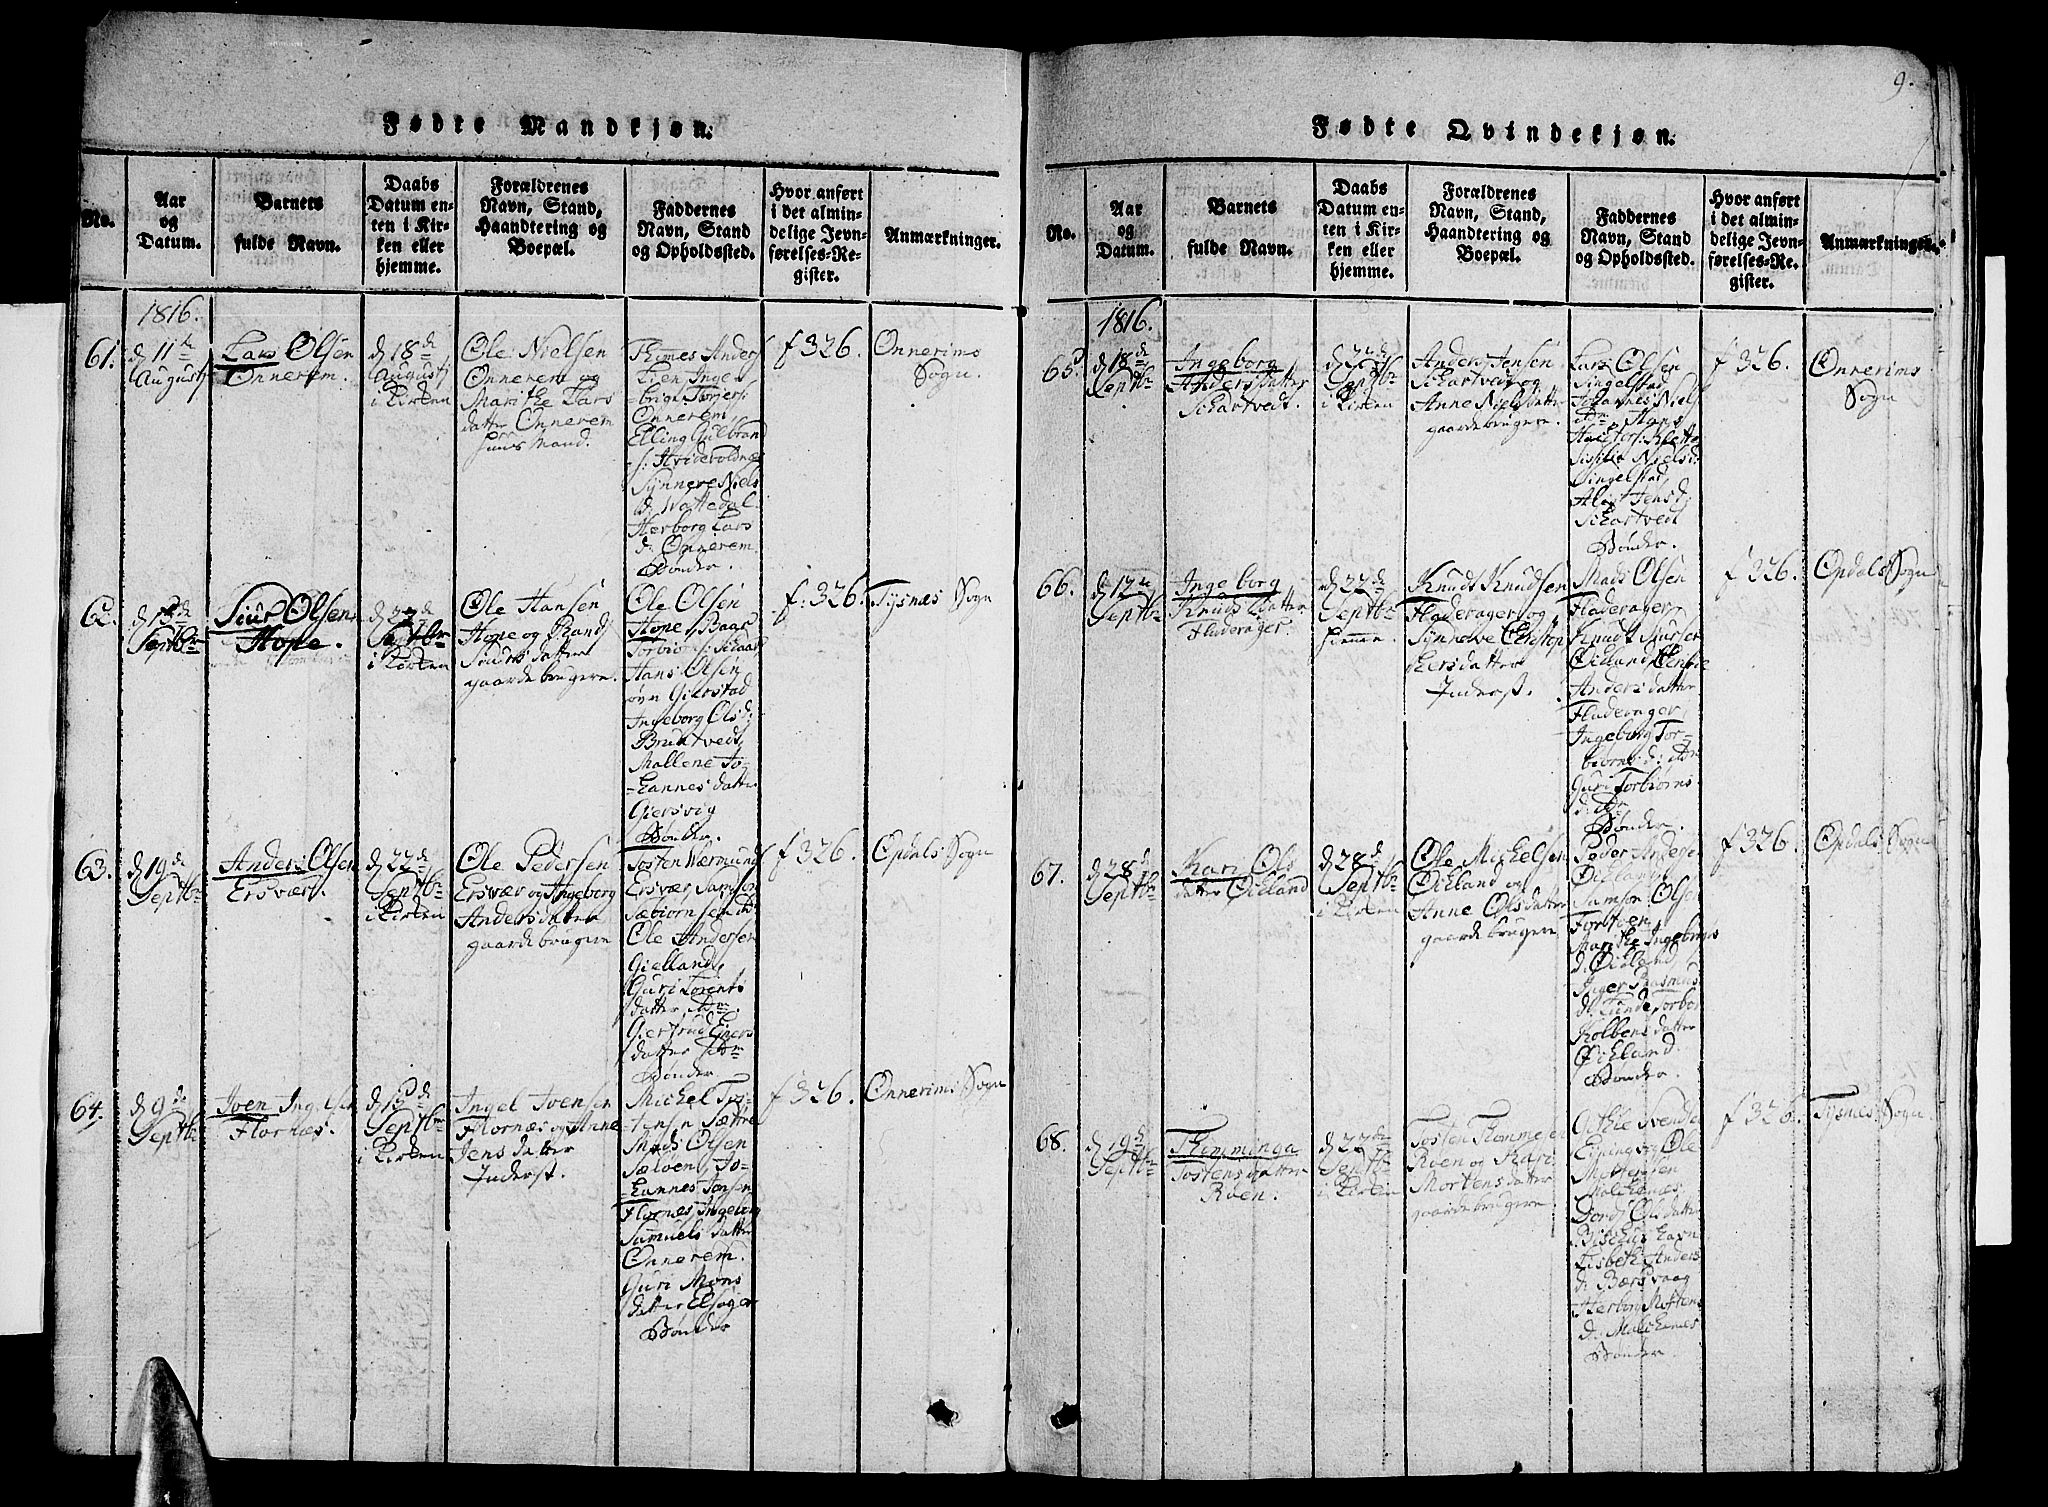 9.
Fødte Mandkjøn.
No.
Aar
og
Datum.
Barnets
fulde Navn.
Daabs
Datum en-
ten i Kir-
ken eller
hjemme.
Forældrenes
Navn, Stand,
Haandtering og
Boepæl.
Faddernes
Navn, Stand
og Opholdssted.
Hvor anført
i det almin-
delige Jevn-
førelses-Re-
gister.
Anmærkninger.
1816.
61.
d 11te
Augustj
Lars Olsen
Onnerem.
d 18de
Augustj
i Kirken
Ole Nielsen
Onnerem og
Marithe Lars
datter Onnerem
Huusmand.
Thomes Anders
Lien Inge
-brigt Torjers:
Onnerem,
Elling Gulbran
-s: Hvidevoldnæs
Synneve Niels
d: Wattedal.
Herborg Lars
d: Onnerem.
Bönder.
f 326.
Onnerims
Sogn.
62.
Septbr
Siur Olsen
Hope.
d 22de
Septbr
i Kirken
Ole Hansen
Hope og Brand
Siurs datter
gaardebrugere.
Ole Olsen
Hope, Baar
Torbiörns: Skaar
Hans Olsen
Gierstad
Ingeborg Ols d:
Bruntveds,
Mallene Jo-
-hannes datter
Giersvig
Bönder.
f: 326.
Tysnæs Sogn
63.
d 19de
Septbr
Anders Olsen
Ersvær.
d 22de
Septbr
i Kirken
Ole Pedersen
Ersvær og Ingeborg
Anders datter
gaardebrugere
Tosten Wermunds
Ersvær, Samson
Sæbiornsen do:
Ole Andersen
Gielland,
Guri Lorents
datter, do
Giertrud Einers
datter do
Bönder.
f 326.
Opdals Sogn
64.
d 9de
Septbr
Iven Ingelsen
Flornæs.
d 15de
Septbr
i Kirken
Ingel Ivensen
Flornæs og Anne
Jens datter
Inderst.
Michel To-
stensen Sætre
Mads Olsen
Sælven, Jo-
-hannes Jonsen
Flornæs, Ingeborg
Samuels datter
Onnerem.
Guri Mons
datter Elsager
Bönder
f 326.
Onnerims Sogn
Fødte Qvindekjøn.
No.
Aar
og
Datum.
Barnets
fulde Navn.
Daabs
Datum en-
ten i Kir-
ken eller
hjemme.
Forældrenes
Navn, Stand,
Haandtering og
Boepæl.
Faddernes
Navn, Stand
og Opholdssted.
Hvor anført
i det almin-
delige Jevn-
førelses-Re-
gister.
Anmærkninger.
1816.
65.
d 18de
Septbr
Ingeborg
Anders datter
Schartvedt.
d 22de
Septbr
i Kirken
Anders Jensen
Schartvedt og
Anne Niels datter
gaardebrugere.
Lars Olsen
Singelstad,
Johannes Niels
do Hans
Sissilie Niels d:
Singelstad,
Jens d:
Schartvedt
Bönder.
f 326.
Onnerims
Sogn
66.
d 12te
Septbr
Ingeborg
Knuds datter
Fladerager.
d 22de
Septbr
hiemme.
Knudt Knudsen
Fladerager og
Synneve Christop
hersdatter
Inderst.
Mads Olsen
Fladerager,
Knudt Siursen
Öieland,
Anders datter
Fladerager,
Ingeborg Tor-
biorns d: do
Guri Torbiorns
d: do
Bönder.
f 326.
Opdals Sogn
67.
d 28de
Septbr
Kari Ols
datter Öieland
d 28de
Septbr
i Kirken
Ole Michelsen
Öieland og
Anne Olsdatter
gaardebrugere
Peder Anderse
Öieland,
Samson Olsen
Marithe Ingebrigts
d: Öieland
Inger Rasmus
d: Lunde, Torbor
Kolbens datter
Öieland.
Bönder.
f 326.
Opdals Sogn
68.
d 19de
Septbr
Thomminga
Tostens datter
Röen.
d 22de
Septbr
i Kirken
Tosten Thommesen
Röen og Kari
Mortens datter
gaardebrugere.
Ole
Mortensen
Malchenæs
Dordi Olsdatter
Lisbeth Anders
d: Bærsvaag
Herborg Mortens
d: Malchenæs
Bönder.
f 326.
Tysnes Sogn.